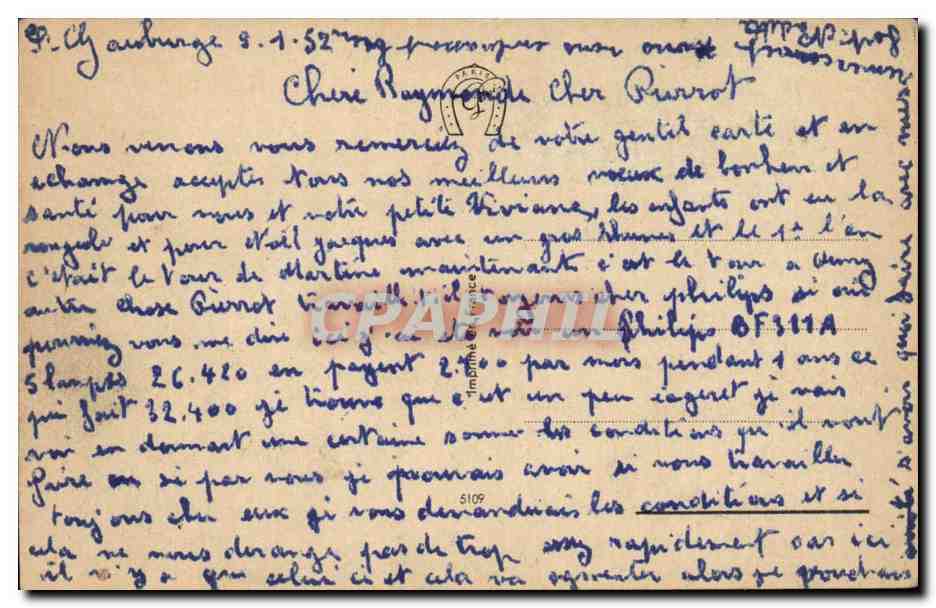 9.1.52
Chère Raymonde Cher Pierrot
PARIS
Nous venons vous remerciez de votre gentil carte et en
echange acceptés tous nos meilleurs voeux de bonheur et
santé pour vous et votre petite Viviane, les enfants ont eu la
rougeole et pour Noël Jacques avec un gros rhumes et le 1er l'an
c'était le tour de Martine maintenant c'est le tour a
autre chose Pierrot travaill il cher philips si oui
pourriez vous me dire un Philips BF311A
5 lampes 26.420 en payent 2.700 par mois pendant 1 ans ce
qui fait 32.400 je trouve que c est un peu je vais
voir en donnant une certaine somme les conditions qu'il vont
faire si par vous je pourrais avoir si vous travailler
toujours chez eux je vous demanderais les conditions et si
cela ne vous derange pas de trop rapidement car ici
il n'y a que celui ci et cela va agmenter alors je
CPARAMA
Imprimé en France
5109